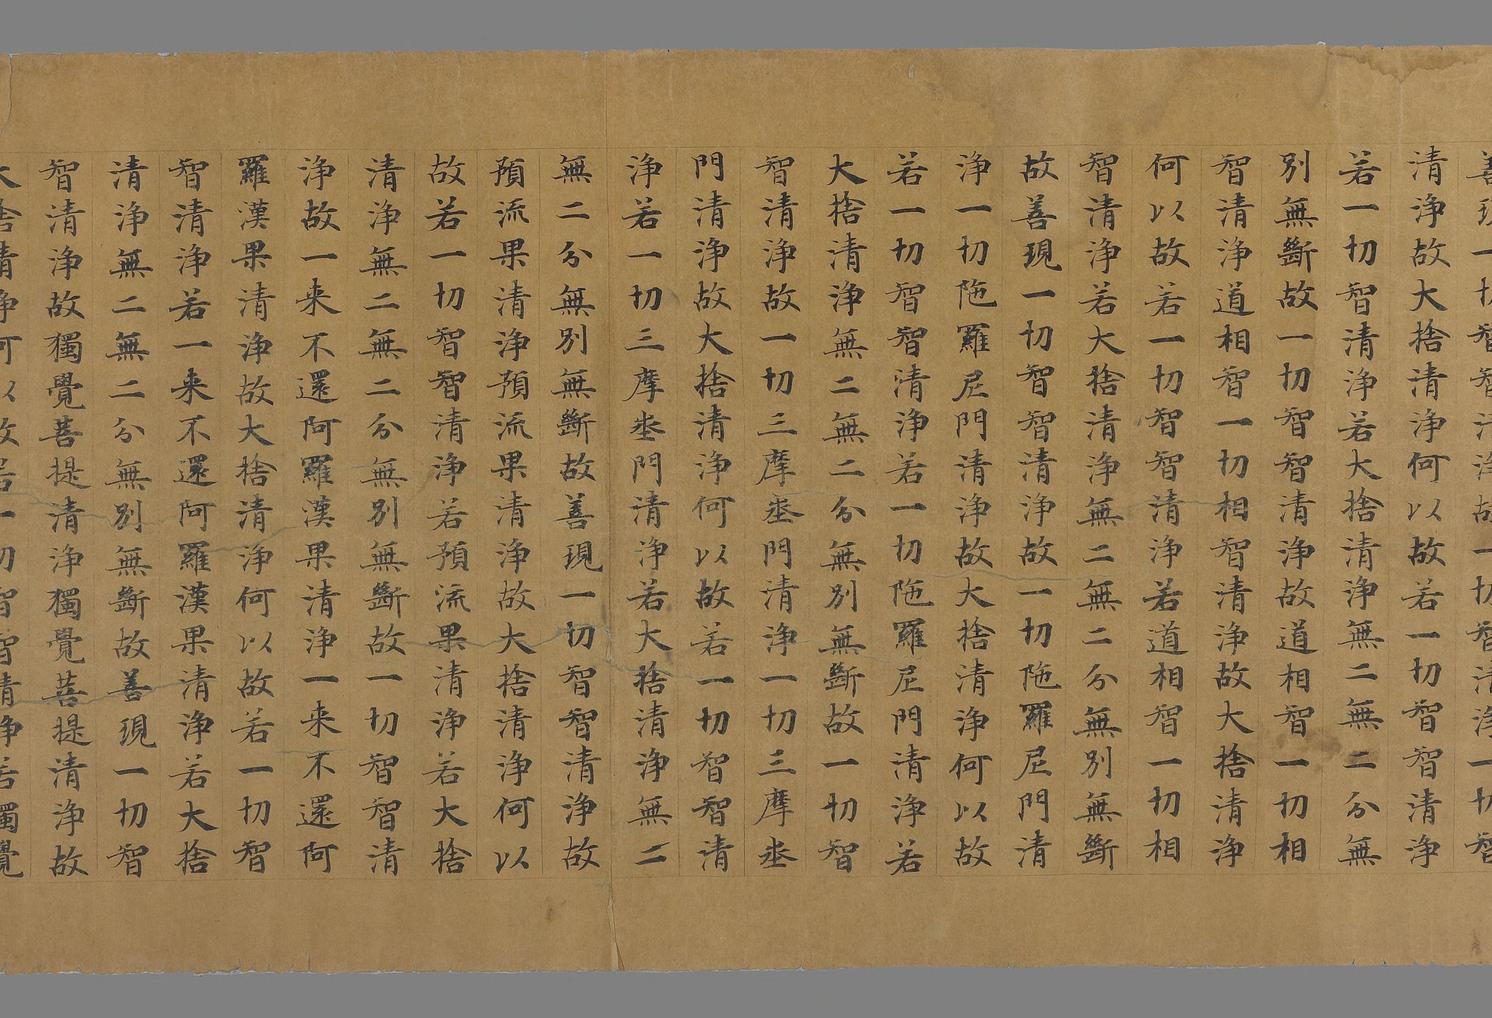 善現一切智智清浄故一切智智清浄一切智
清浄故大捨清浄何以故若一切智智清浄
若一切智清浄若大捨清浄無二無二分無
別無斷故一切智智清浄故道相智一切相
智清浄道相智一切相智清浄故大捨清浄
何以故若一切智智清浄若道相智一切相
智清浄若大捨清浄無二無二分無別無斷
故善現一切智智清浄故一切陁羅尼門清
浄一切陁羅尼門清浄故大捨清浄何以故
若一切智智清浄若一切陁羅尼門清浄若
大捨清浄無二無二分無別無斷故一切智
智清浄故一切三摩埊門清浄一切三摩埊
門清浄故大捨清浄何以故若一切智智清
浄若一切三摩埊門清浄若大捨清浄無二
無二分無別無斷故善現一切智智清浄故
預流果清浄預流果清浄故大捨清浄何以
故若一切智智清浄若預流果清浄若大捨
清浄無二無二分無別無斷故一切智智清
浄故一来不還阿羅漢果清浄一来不還阿
羅漢果清浄故大捨清浄何以故若一切智
智清浄若一来不還阿羅漢果清浄若大捨
清浄無二無二分無別無斷故善現一切智
智清浄故獨覺菩提清浄獨覺菩提清浄故
大捨清浄何以故若一切智智清浄若獨覺